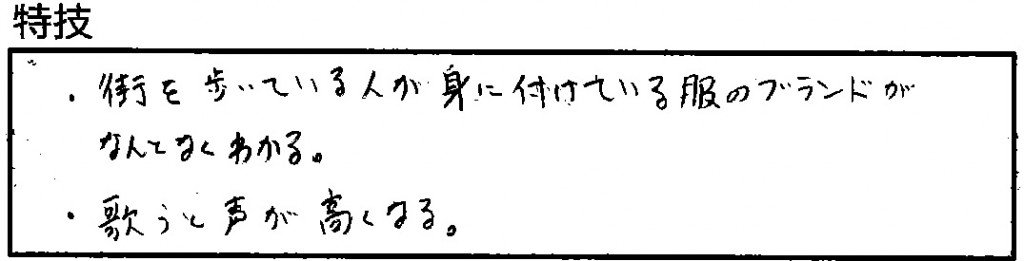 特技
・街を歩いている人が身に付けている服のブランドが
なんとなくわかる。
・歌うと声が高くなる。